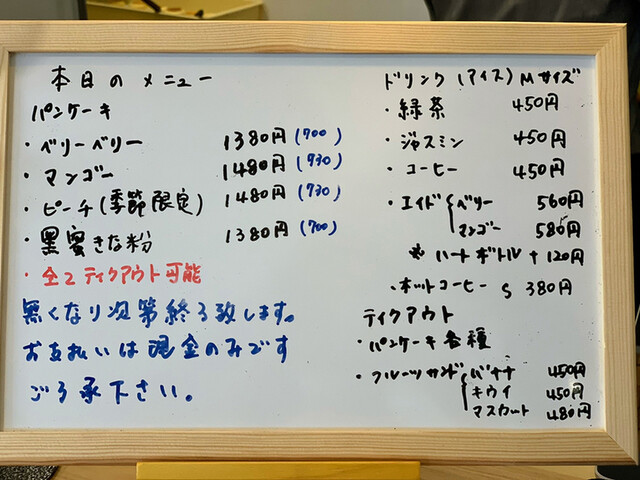 本日のメニュー
パンケーキ
・ベリーベリー 1380円(700)
・マンゴー 1480円(730)
・ピーチ(季節限定) 1480円(730)
・黒蜜きな粉 1380円(700)
・全てテイクアウト可能
無くなり次第終了致します。
お支払いは現金のみです
ご了承下さい。
ドリンク(アイス)Mサイズ
・緑茶 450円
・ジャスミン 450円
・コーヒー 450円
・エイド{ベリー 560円
マンゴー 580円
※ハートボトル+120円
・ホットコーヒー S 380円
テイクアウト
・パンケーキ各種
・フルーツサンド{バナナ 450円
キウイ 450円
マスカット 480円